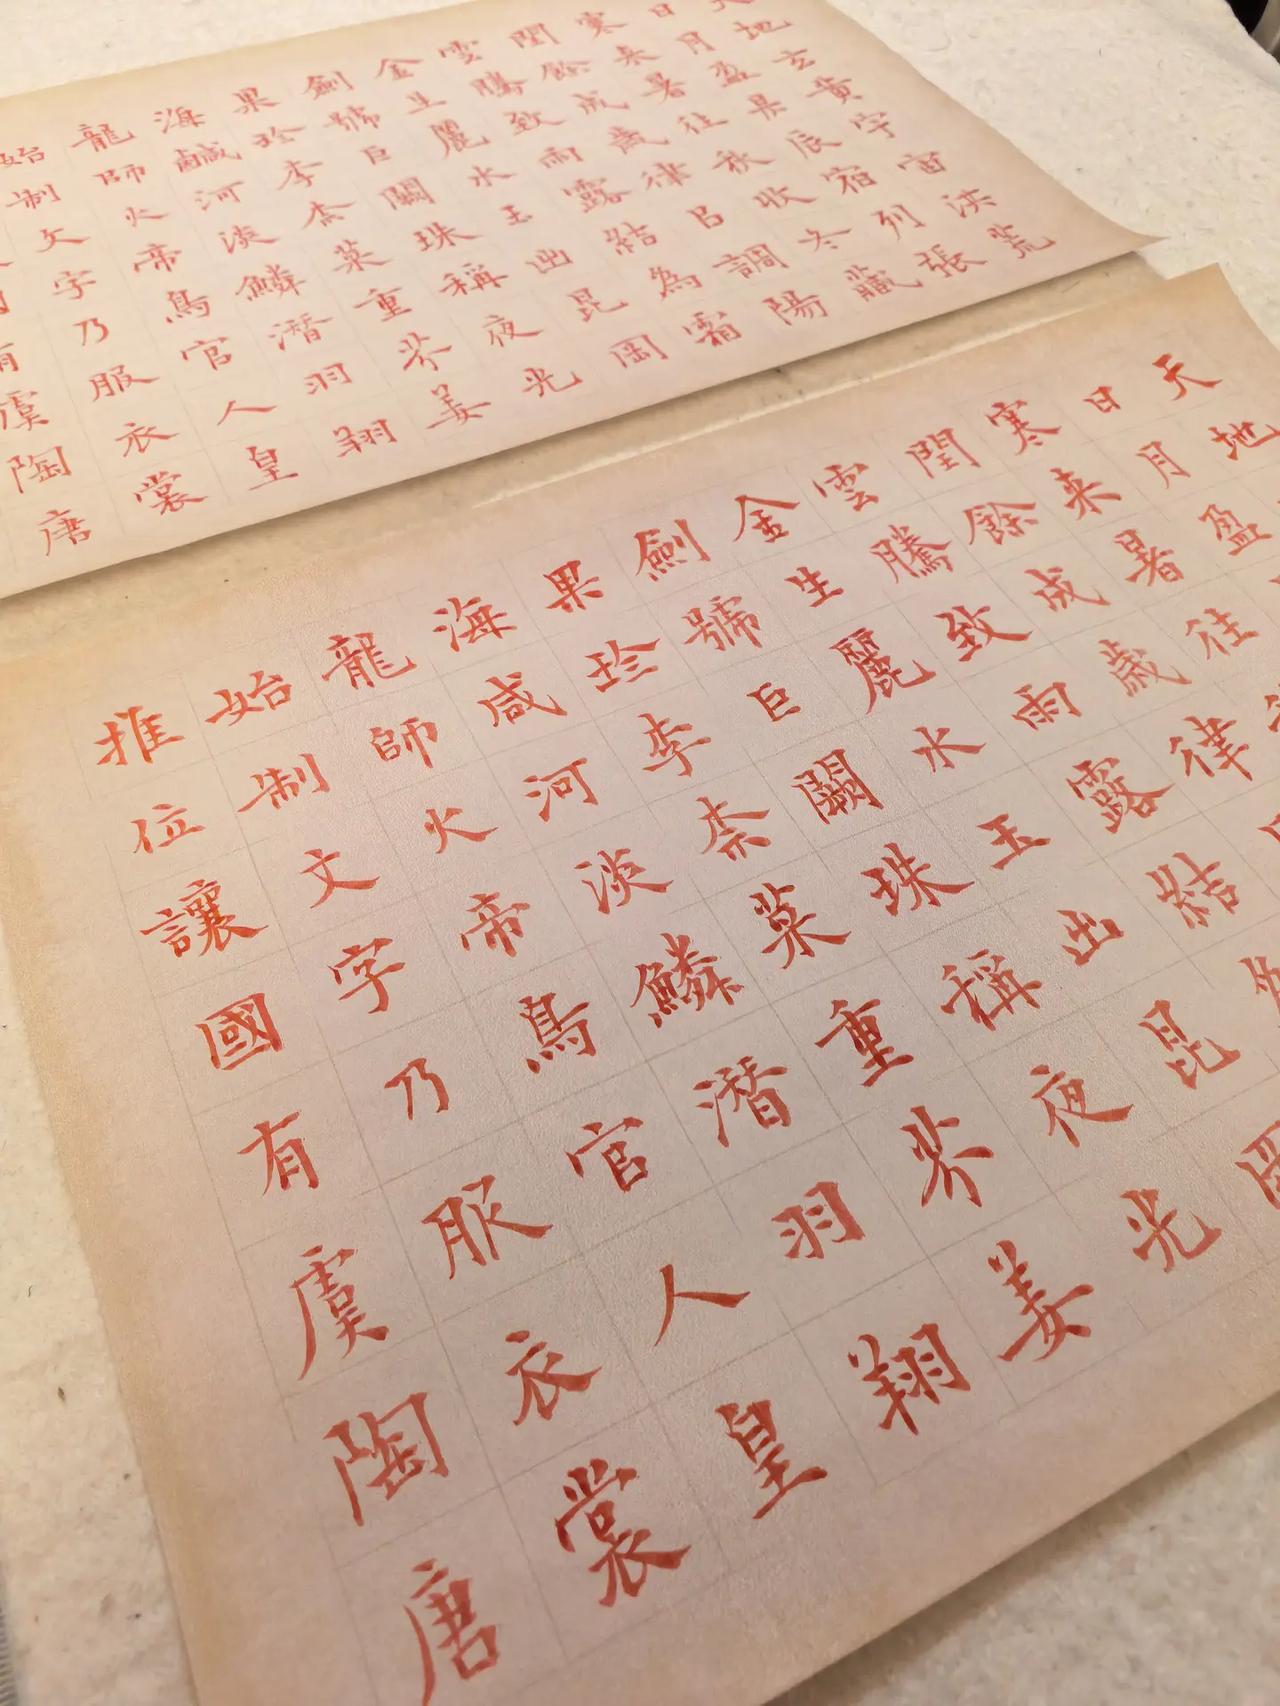 地玄黄宇宙洪荒
日月盈昃辰宿列張
寒来暑往秋收冬藏
閏餘成歲律吕調陽
雲騰致雨露結為霜
金生麗水玉出昆岡
劍號巨闕珠稱夜光
果珍李柰菜重芥姜
海鹹河淡鱗潜羽翔
龍師火帝鳥官人皇
始制文字乃服衣裳
有虞陶唐
天地
日月盈
寒来暑往
閏餘成歲律
雲騰致雨露結
金生麗水玉出昆岡
劍號巨闕珠稱夜光
果珍李柰菜重芥姜
海咸河淡鱗潜羽翔
龍師火帝鳥官人皇
始制文字乃服衣裳
推位讓國有虞陶唐